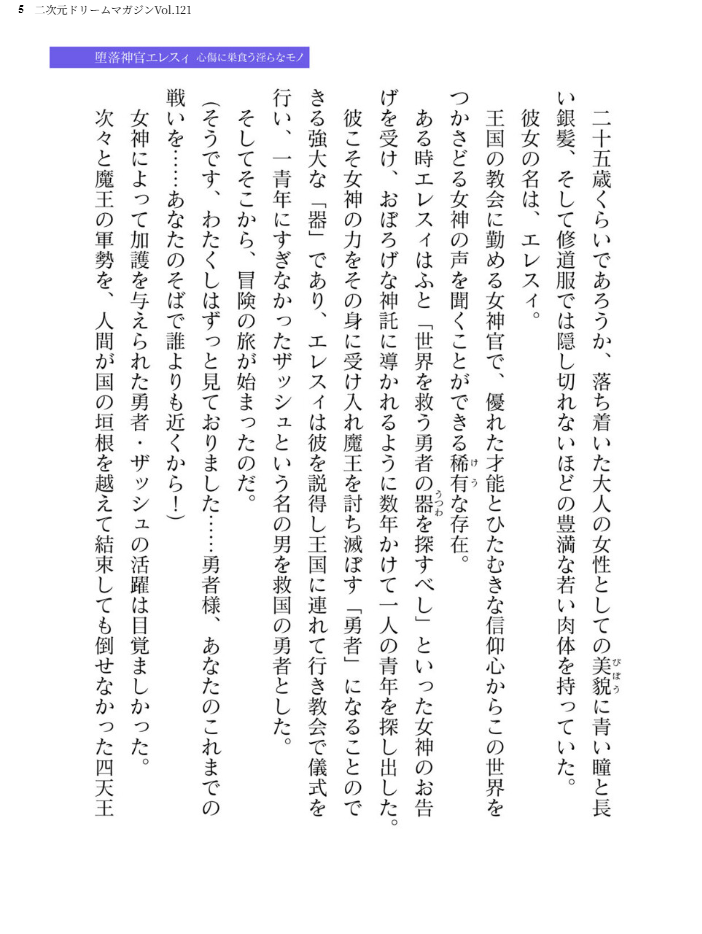 5 二次元ドリームマガジンVol.121
堕落神官エレスィ 心傷に巣食う淫らなモノ
二十五歳くらいであろうか、落ち着いた大人の女性としての美貌に青い瞳と長
びぼう
い銀髪、そして修道服では隠し切れないほどの豊満な若い肉体を持っていた。
彼女の名は、エレスィ。
王国の教会に勤める女神官で、優れた才能とひたむきな信仰心からこの世界を
つかさどる女神の声を聞くことができる稀有な存在。
けう
ある時エレスィはふと「世界を救う勇者の器を探すべし」といった女神のお告
うつわ
げを受け、おぼろげな神託に導かれるように数年かけて一人の青年を探し出した。
彼こそ女神の力をその身に受け入れ魔王を討ち滅ぼす「勇者」になることので
きる強大な「器」であり、エレスィは彼を説得し王国に連れて行き教会で儀式を
行い、一青年にすぎなかったザッシュという名の男を救国の勇者とした。
そしてそこから、冒険の旅が始まったのだ。
(そうです、わたくしはずっと見ておりました……勇者様、あなたのこれまでの
戦いを……あなたのそばで誰よりも近くから！)
女神によって加護を与えられた勇者・ザッシュの活躍は目覚ましかった。
次々と魔王の軍勢を、人間が国の垣根を越えて結束しても倒せなかった四天王